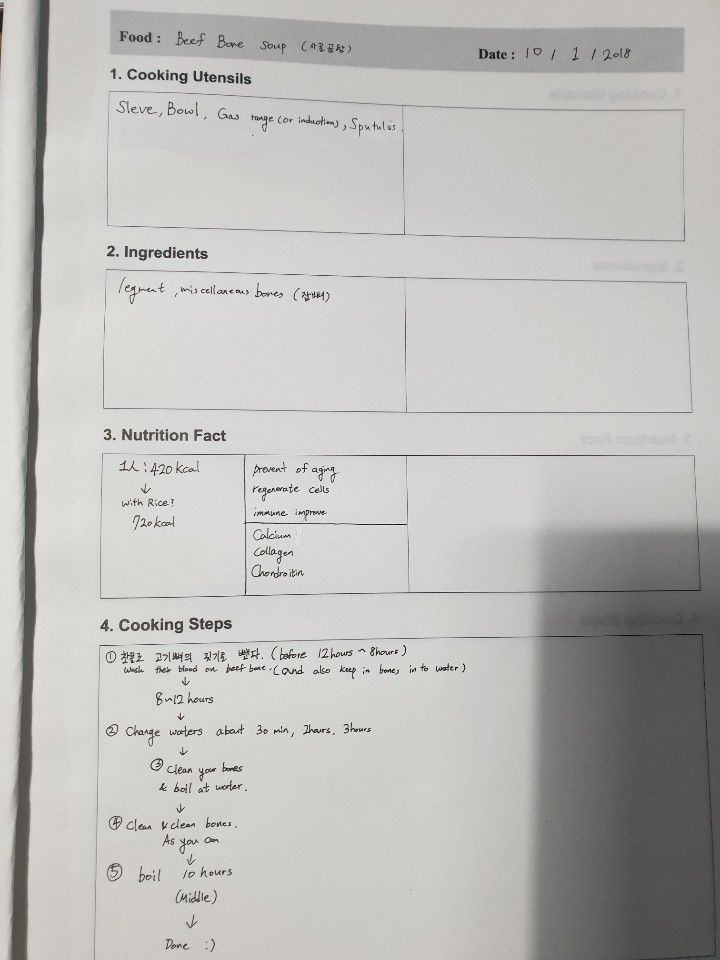 Food : Beef Bone Soup (사골곰탕)
Date : 10 / 1 / 2018
1. Cooking Utensils
Sieve, Bowl, Gas range (or induction), Sputulas.
2. Ingredients
legment, miscellaneous bones (잡뼈)
3. Nutrition Fact
1人 : 420 kcal
↓
with Rice?
720 kcal
prevent of aging
regenerate cells
immune improve
Calcium
Collagen
Chondroitin
4. Cooking Steps
① 찬물로 고기뼈의 핏기를 뺀다. (before 12hours ~ 8hours)
Wash their blood on beef bone. (and also keep in bones in to water)
↓
8~12 hours
↓
② Change waters about 30 min, 2hours, 3hours
↓
③ Clean your bones
& boil at water.
↓
④ Clean & clean bones.
As you can
↓
⑤ boil 10 hours
(Middle)
↓
Done :)